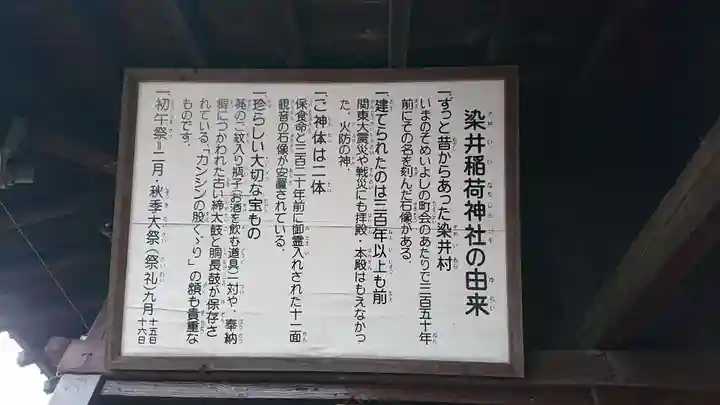 染井稲荷神社の由来
一、ずっと昔からあった染井村
いまのそめいよしの町会のあたりで三百五十年
前にその名を刻んだ石像がある。
一、建てられたのは三百年以上も前
関東大震災や戦災にも拝殿・本殿はもえなかっ
た。火防の神。
一、ご神体は二体
保食命と三百二十年前に御霊入れされた十一面
観音の石像が安置されている。
一、珍らしい大切な宝もの
葵のご紋入り瓶子(お酒を飲む道具)二対や、奉納
につかわれた古い締太鼓と胴長鼓が保存さ
れている。「カンシンの股くゞり」の額も貴重な
ものです。
一、初午祭=二月・秋季大祭(祭礼)九月 十五日
十六日